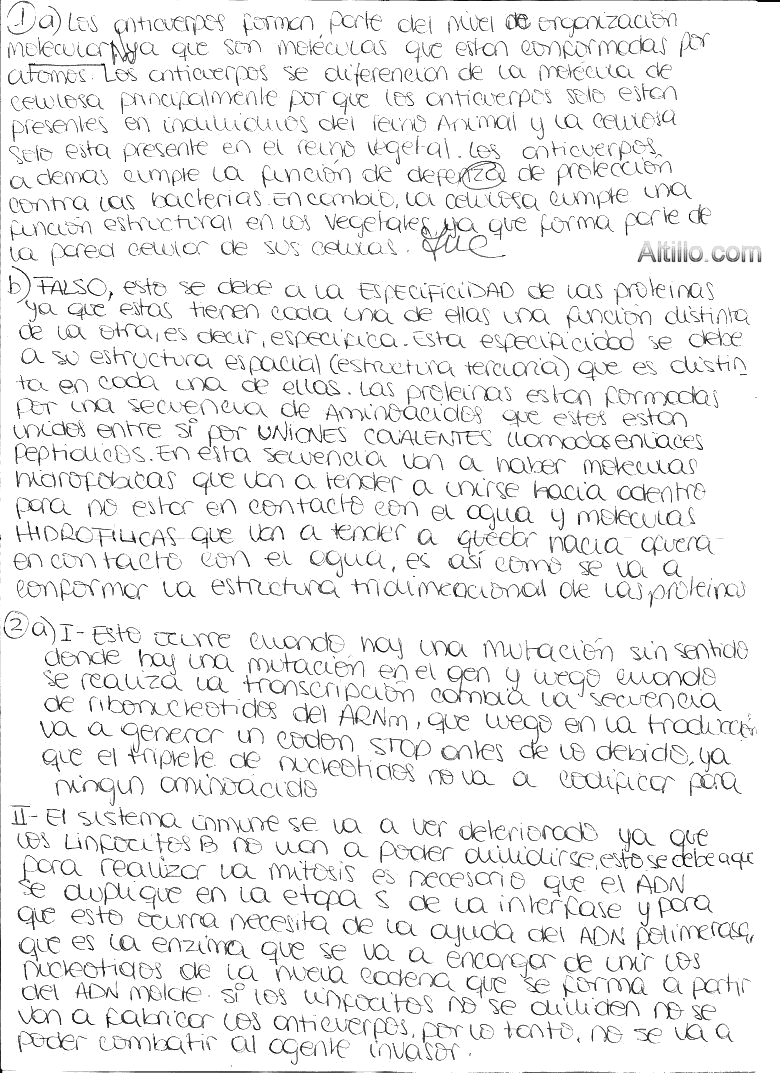 ① a) Los anticuerpos forman parte del nivel de organización
molecular ya que son moléculas que estan conformadas por
atomos. Los anticuerpos se diferencian de la molécula de
celulosa principalmente por que los anticuerpos solo estan
presentes en individuos del reino Animal y la celulosa
solo esta presente en el reino vegetal. Los anticuerpos
ademas cumple la función de defenza de protección
contra las bacterias. En cambio, la celulosa cumple una
función estructural en los vegetales ya que forma parte de
la pared celular de sus celulas.
Altillo.com
b) FALSO, esto se debe a la ESPECIFICIDAD de las proteinas
ya que estas tienen cada una de ellas una función distinta
de la otra, es decir, especifica. Esta especificidad se debe
a su estructura espacial (estructura terciaria) que es distin
ta en cada una de ellas. Las proteinas estan formadas
por una secuencia de Aminoacidos que estos estan
unidos entre sí por UNIONES COVALENTES llamadas enlaces
Peptidicos. En esta secuencia van a haber moleculas
hidrofobicas que van a tender a unirse hacia adentro
para no estar en contacto con el agua y moleculas
HIDROFILICAS que van a tender a quedar hacia afuera
en contacto con el agua, es así como se va a
conformar la estructura tridimencional de las proteinas
② a) I- Esto ocurre cuando hay una mutación sin sentido
donde hay una mutación en el gen y luego cuando
se realiza la transcripción cambia la secuencia
de ribonucleotidos del ARNm, que luego en la traducción
va a generar un codon STOP antes de lo debido, ya
que el triplete de nucleotidos no va a codificar para
ningun aminoacido
II- El sistema inmune se va a ver deteriorado ya que
los Linfocitos B no van a poder dividirse, esto se debe a que
para realizar la mitosis es necesario que el ADN
se duplique en la etapa S de la interfase y para
que esto ocurra necesita de la ayuda del ADN polimerasa,
que es la enzima que se va a encargar de unir los
nucleotidos de la nueva cadena que se forma a partir
del ADN molde. Si los linfocitos no se dividen no se
van a fabricar los anticuerpos, por lo tanto, no se va a
poder combatir al agente invasor.